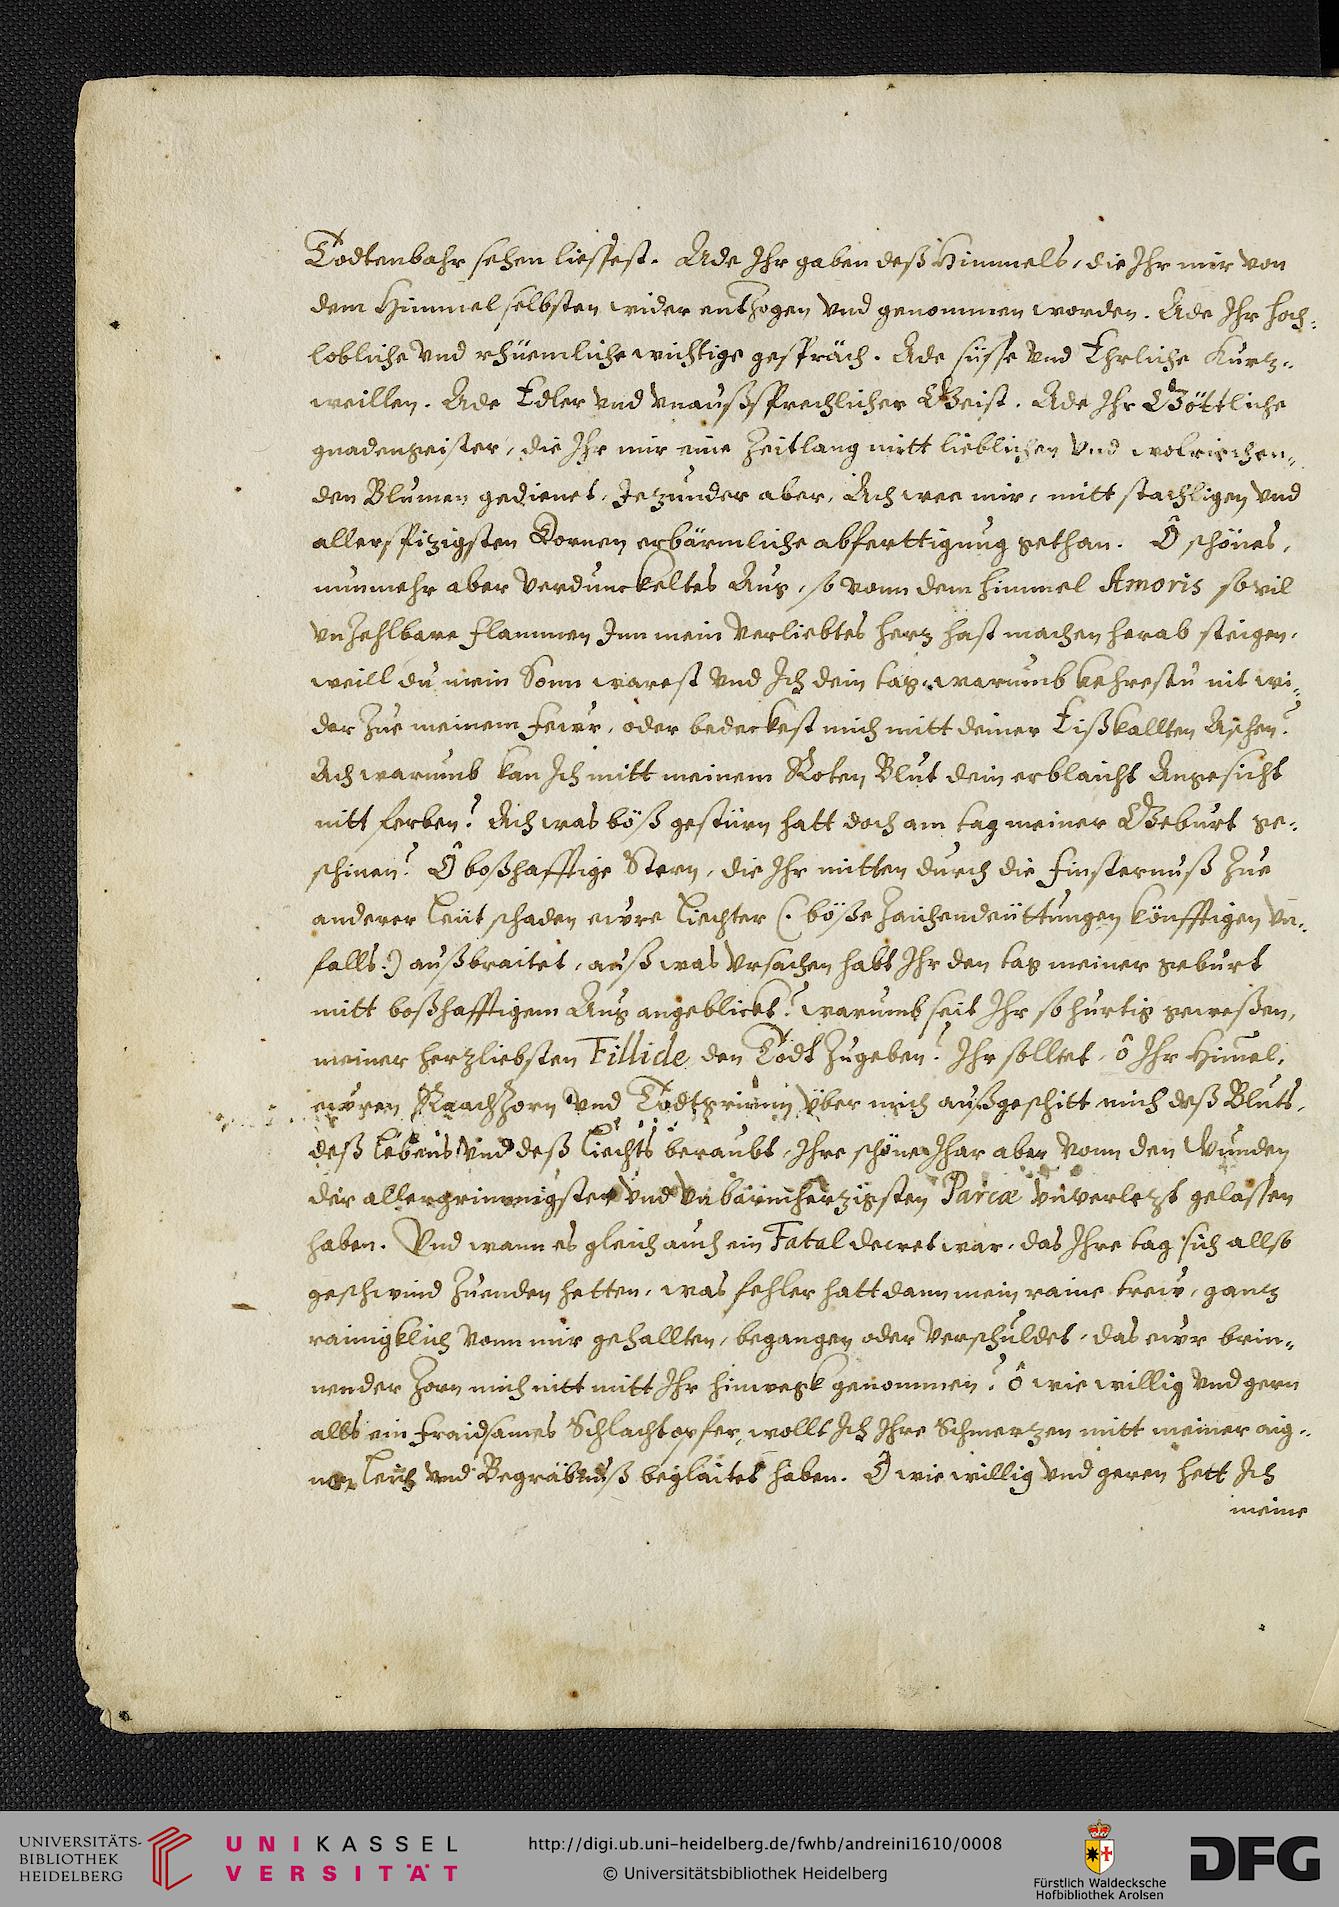 Todtenbahr sehen liessest. Ade Ihr gaben deß Himmels, die Ihr mir von
dem Himmel selbsten wider entzogen vnd genommen worden. Ade Ihr hoch-
lobliche vnd rhüemliche wichtige gespräch. Ade süsse vnd Ehrliche Kurtz-
weillen. Ade Edler vnd vnaußsprechlicher Geist. Ade Ihr Göttliche
gnadengeister, die Ihr mir eine Zeitlang mitt lieblichen vnd wolriechen-
den Blumen gedienet, Jezunder aber, Ach wee mir, mitt stachligen vnd
allerspizigsten Dornen erbärmliche abferttigung gethan. Ô schönes,
nunmehr aber verdunckeltes Aug, so vonn dem himmel Amoris so vil
vnzehlbare flammen Inn mein verliebtes herz hast machen herab steigen,
weill du mein Sonn warest vnd Ich dein tag, warumb kehrestu nit wi-
der zue meinem fewr, oder bedeckest mich mitt deiner Eißkallten Aschen?
Ach warumb kan Ich mitt meinem Roten Blut dein erblaicht Angesicht
nitt ferben? Ach was böß gestürn hatt doch am tag meiner Geburt ge-
schinen? Ô boßhafftige Stern, die Ihr mitten durch die finsternuß zue
anderer leüt schaden ewre liechter (: böße Zaichendeüttungen könfftigen vn-
falls:) außbraitet, auß was vrsachen habt Ihr den tag meiner geburt
mitt boßhafftigem Aug angeblickt? warumb seit Ihr so hurtig gewesen,
meiner herzliebsten Fillide den Todt zugeben? Ihr solltet, ô Ihr Himel,
ewren Raachzorn vnd Todtgrimm über mich außgeschitt, mich deß Bluts,
deß lebens vnd deß liechts beraubt, Ihre schöne Ihar aber vonn den Wunden
der allergrimmigsten vnd vnbarmherzigsten Parcæ vnverlezt gelassen
haben. Vnd wann es gleich auch ein Fatal decret war, das Ihre tag sich allso
geschwind zuenden hetten, was fehler hatt dann mein raine trew, gantz
rainigklich vonn mir gehallten, begangen oder verschuldet, das ewr brin-
nender Zorn mich nitt mitt Ihr hinwegk genommen? ô wie willig vnd gern
allß ein fraidsames Schlachtopfer, wollt Ich Ihre Schmerzen mitt meiner aig-
nen leich vnd Begräbnuß beglaitet haben. Ô wie willig vnd geren hett Ich
meine
UNIVERSITÄTS-
BIBLIOTHEK
HEIDELBERG
UNIKASSEL
VERSITÄT
http://digi.ub.uni-heidelberg.de/fwhb/andreini1610/0008
© Universitätsbibliothek Heidelberg
Fürstlich Waldecksche
Hofbibliothek Arolsen
DFG